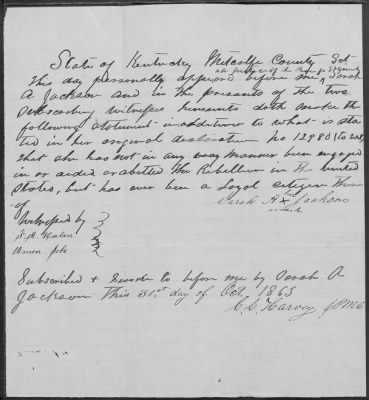 State of Kentucky Metcalfe County Sct
a Justice of the Peace for sd County
This day personally appeared before me Sarah
A Jackson and in the presence of the two
Subscribing witnesses hereunto doth make the
following statement in addition to what is sta
ted in her original declaration No 12980 (to wit)
that she has not in any way manner been engaged
in or aided or abetted the Rebellion in the united
States, but has ever been a Loyal citizen there
of
Sarah A X Jackson
her
mark
Witnessed by
Subscribed & Sworn to before me by Sarah A
Jackson This 31st day of Oct, 1865
C. C. Harvey JPMC